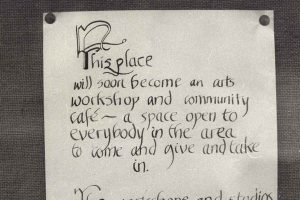 This place
will soon become an arts
workshop and community
café ~ a space open to
everybody in the area
to come and give and take
in.
workshops and studios